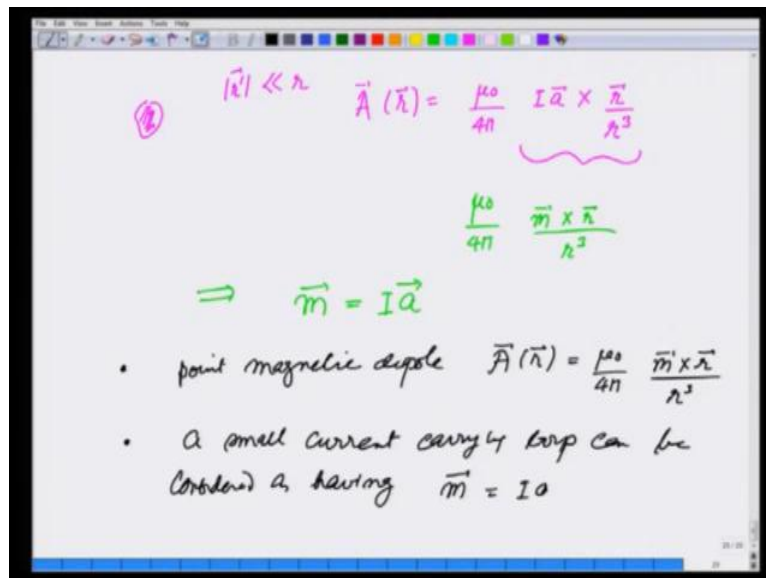 File Edit View Insert Actions Tools Help
|r⃗'| << r    A⃗ (r⃗) = μ₀/4π I a⃗ × r⃗/r³
μ₀/4π m⃗ × r⃗/r³
⟹ m⃗ = I a⃗
• point magnetic dipole A⃗ (r⃗) = μ₀/4π m⃗ × r⃗/r³
• a small current carryiy loop can be
Considered as having m⃗ = I a